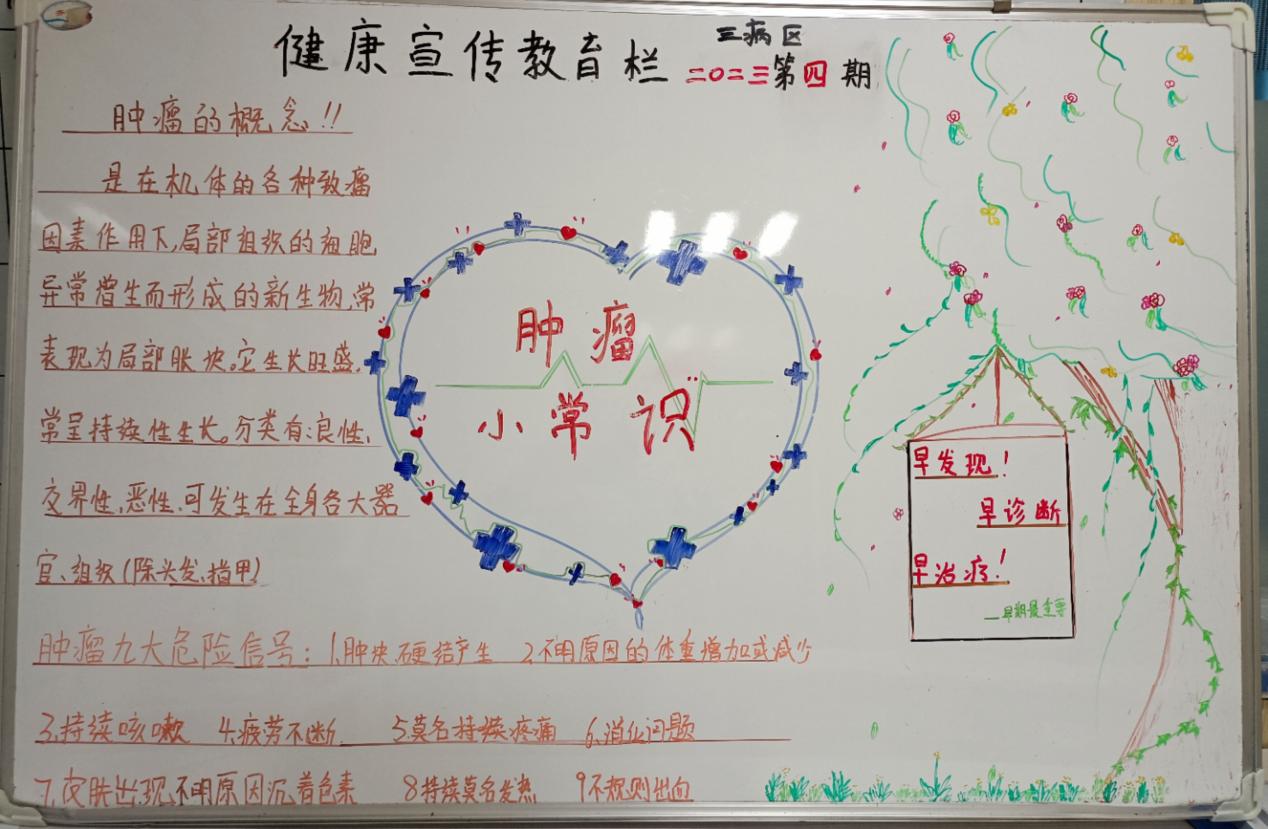 健康宣传教育栏
三病区
二〇二三第四期
肿瘤的概念!!
是在机体的各种致瘤
因素作用下,局部组织的细胞
异常增生而形成的新生物,常
表现为局部胀块。它生长旺盛,
常呈持续性生长。分类有:良性、
交界性、恶性、可发生在全身各大器
官、组织(除头发、指甲)
肿瘤
小常识
早发现!
早诊断
早治疗!
—早期最重要
肿瘤九大危险信号:1、肿块、硬结产生 2、不明原因的体重增加或减少
3、持续咳嗽 4、疲劳不断 5、莫名持续疼痛 6、消化问题
7、皮肤出现不明原因沉着色素 8持续莫名发热 9不规则出血